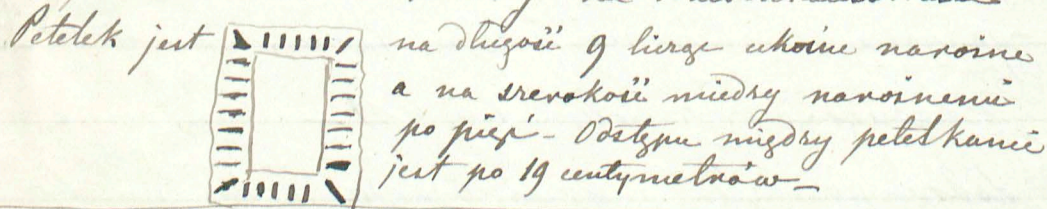 Petelek jest na długość 9 licząc ukośne narożne
a na szerokość między narożnemi
po pięć - Odstępu między petelkami
jest po 19 centymetrów -